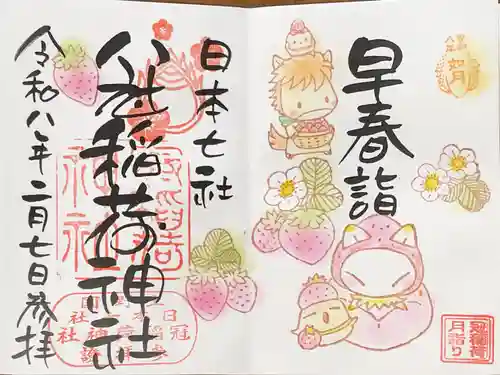 如月
早春詣
冠稲荷
月詣り
日本七社
冠稲荷神社
令和八年二月七日参拝